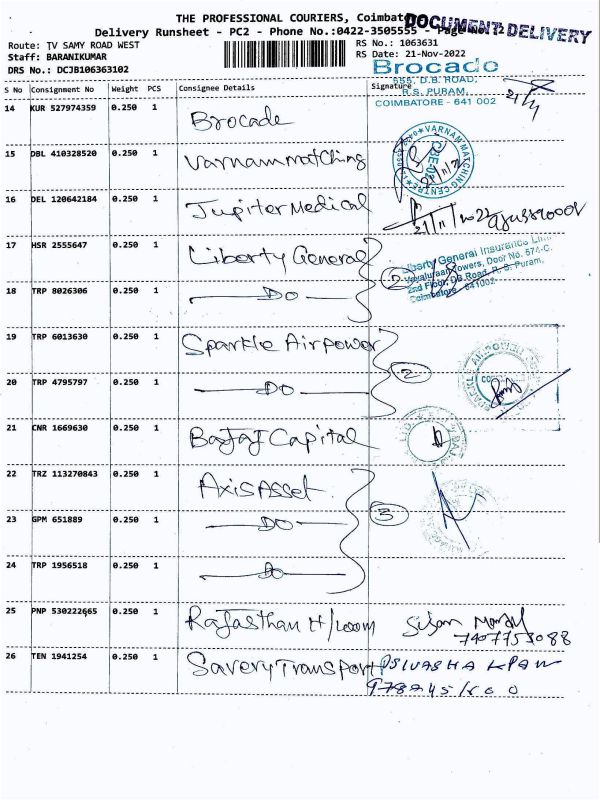 THE PROFESSIONAL COURIERS, Coimbato
DOCUMENT DELIVERY
Delivery Runsheet - PC2 - Phone No.:0422-3505555 - Page No.:2
Route: TV SAMY ROAD WEST
RS No.: 1063631
Staff: BARANIKUMAR
RS Date: 21-Nov-2022
DRS No.: DCJB106363102
Brocade
555, D.B. ROAD,
R.S. PURAM,
COIMBATORE - 641 002
S No Consignment No Weight PCS Consignee Details Signature
14 KUR 527974359 0.250 1 Brocade
15 DBL 410328520 0.250 1 Varnam Matching
VARNAM MATCHING CENTRE
16 DEL 120642184 0.250 1 Jupiter Medical
21/11/2022
17 HSR 2555647 0.250 1 Liberty General
Liberty General Insurance Limi
Towers, Door No. 574-C,
2nd Floor, DB Road, R. S. Puram,
Coimbatore - 641002
18 TRP 8026306 0.250 1 DO
19 TRP 6013630 0.250 1 Sparkle Airpower
2
20 TRP 4795797 0.250 1 DO
21 CNR 1669630 0.250 1 Bajaj Capital
22 TRZ 113270843 0.250 1 Axis Asset
3
23 GPM 651889 0.250 1 DO
24 TRP 1956518 0.250 1 DO
25 PNP 530222665 0.250 1 Rajasthan H/loom
26 TEN 1941254 0.250 1 Savery Transport